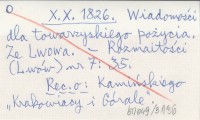 X.X. 1826. Wiadomości
dla towarzyskiego pożycia.
Ze Lwowa. – Rozmaitości
(Lwów) nr 7. 35.
Rec. o: Kamińskiego
„Krakowiacy i Górale".